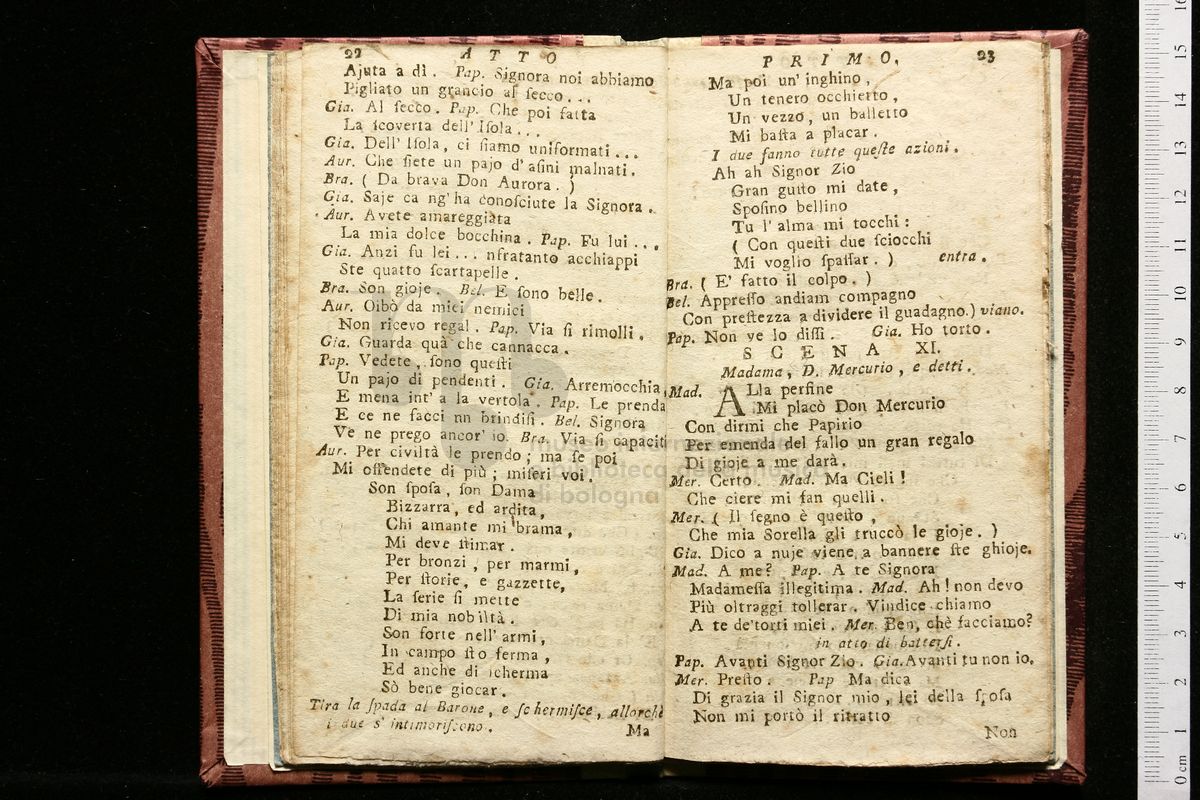 22 ATTO
Ajuta a dì. Pap. Signora noi abbiamo
Pigliato un grancio al ſecco...
Gia. Al ſecco. Pap. Che poi fatta
La ſcoverta dell' Iſola...
Gia. Dell' Iſola, ci ſiamo uniformati...
Aur. Che ſiete un pajo d'aſini malnati.
Bra. ( Da brava Don Aurora. )
Gia. Saje ca ng' ha conoſciute la Signora.
Aur. Avete amareggiàta
La mia dolce bocchina. Pap. Fu lui...
Gia. Anzi fu lei... nfratanto acchiappi
Ste quatto ſcartapelle.
Bra. Son gioje. Bel. E ſono belle.
Aur. Oibò da miei nemici
Non ricevo regal. Pap. Via ſi rimolli.
Gia. Guarda quà che cannacca.
Pap. Vedete, ſono queſti
Un pajo di pendenti. Gia. Arremocchia,
E mena int' a la vertola. Pap. Le prenda
E ce ne facci nn brindiſi. Bel. Signora
Ve ne prego ancor' io. Bra. Via ſi capaciti
Aur. Per civiltà le prendo; ma ſe poi
Mi offendete di più; miſeri voi.
Son ſpoſa, ſon Dama
Bizzarra, ed ardita,
Chi amante mi brama,
Mi deve ſtimar.
Per bronzi, per marmi,
Per ſtorie, e gazzette,
La ſerie ſi mette
Di mia nobiltà.
Son forte nell' armi,
In campo ſto ferma,
Ed anche di ſcherma
Sò bene giocar.
Tira la ſpada al Barone, e ſchermiſce, allorchè
i due s' intimoriſcono.
Ma
PRIMO. 23
Ma poi un' inghino,
Un tenero occhietto,
Un vezzo, un balletto
Mi baſta a placar.
I due fanno tutte queſte azioni.
Ah ah Signor Zio
Gran guſto mi date,
Spoſino bellino
Tu l' alma mi tocchi:
( Con queſti due ſciocchi
Mi voglio ſpaſſar. ) entra.
Bra. ( E' fatto il colpo. )
Bel. Appreſſo andiam compagno
Con preſtezza a dividere il guadagno.) viano.
Pap. Non ve lo diſſi. Gia. Ho torto.
SCENA XI.
Madama, D. Mercurio, e detti.
Mad. ALla perfine
Mi placò Don Mercurio
Con dirmi che Papirio
Per emenda del fallo un gran regalo
Di gioje a me darà.
Mer. Certo. Mad. Ma Cieli!
Che ciere mi fan quelli.
Mer. ( Il ſegno è queſto,
Che mia Sorella gli truccò le gioje. )
Gia. Dico a nuje viene a bannere ſte ghioje.
Mad. A me? Pap. A te Signora
Madameſſa illegitima. Mad. Ah! non devo
Più oltraggi tollerar. Vindice chiamo
A te de'torti miei. Mer. Ben, chè facciamo?
in atto di batterſi.
Pap. Avanti Signor Zio. Gia. Avanti tu non io.
Mer. Preſto. Pap Ma dica
Di grazia il Signor mio, lei della ſpoſa
Non mi portò il ritratto
Non